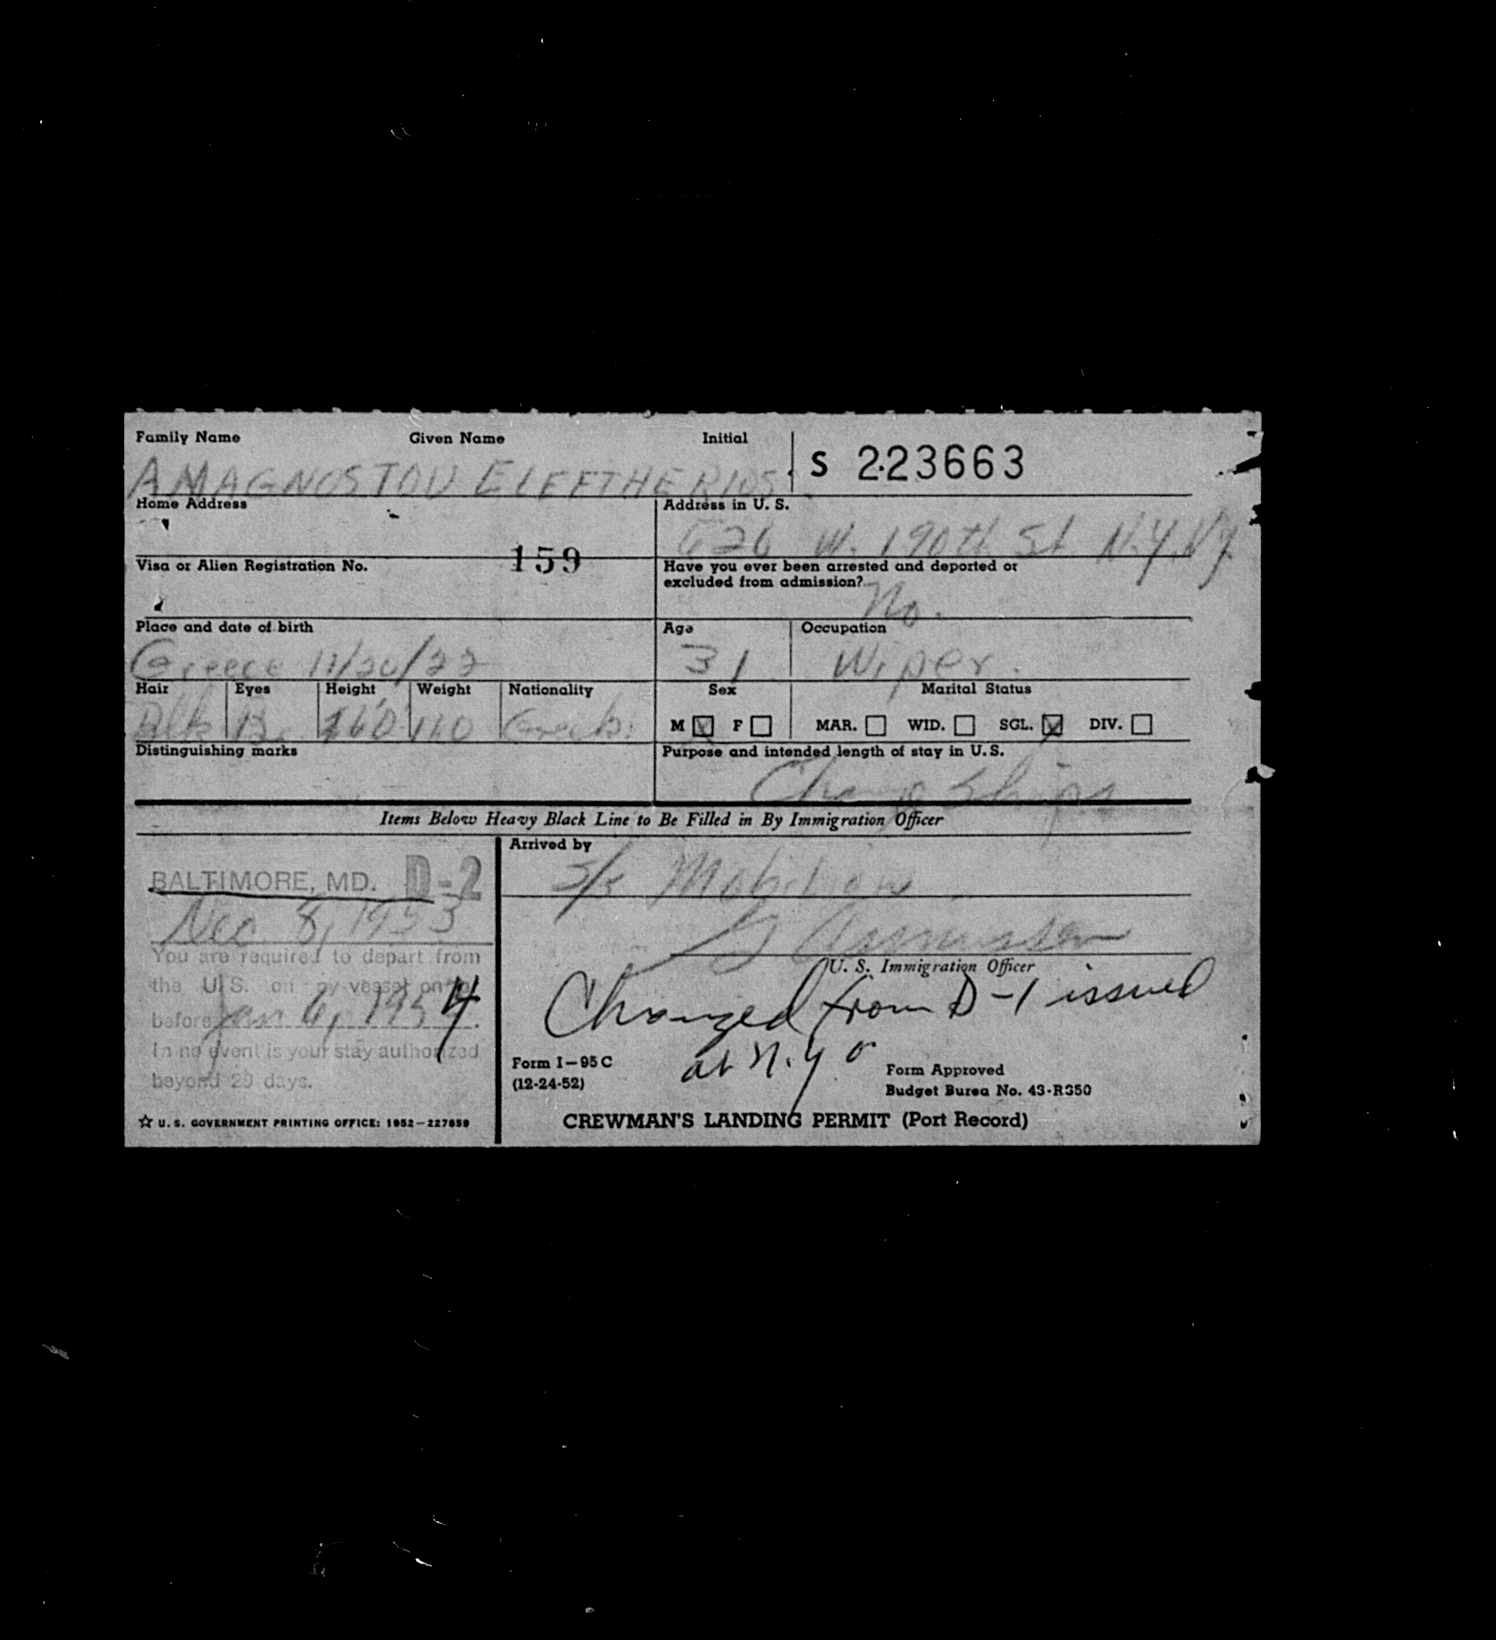 Family Name Given Name Initial
AMAGNOSTOU ELEFTHERIOS S 223663
Home Address Address in U. S.
626 W. 190th St N.Y. N.Y.
159
Visa or Alien Registration No. Have you ever been arrested and deported or
excluded from admission?
No.
Place and date of birth Age Occupation
Greece 11/20/22 31 Wiper.
Hair Eyes Height Weight Nationality Sex Marital Status
Blk Br. 160 Greek. M ☒ F ☐ MAR. ☐ WID. ☐ SGL. ☒ DIV. ☐
Distinguishing marks Purpose and intended length of stay in U. S.
Change Ships
Items Below Heavy Black Line to Be Filled in By Immigration Officer
Arrived by
BALTIMORE, MD. D-2 S/S
Dec 8, 1953 G Asmussen
You are required to depart from
the U.S. on any vessel on or
before Jan 6, 1954.
In no event is your stay authorized
beyond 29 days.
U. S. Immigration Officer
Changed from D-1 issued
at N.Y.
Form I-95 C
(12-24-52)
Form Approved
Budget Burea No. 43-R350
☆ U. S. GOVERNMENT PRINTING OFFICE: 1952—227659
CREWMAN'S LANDING PERMIT (Port Record)